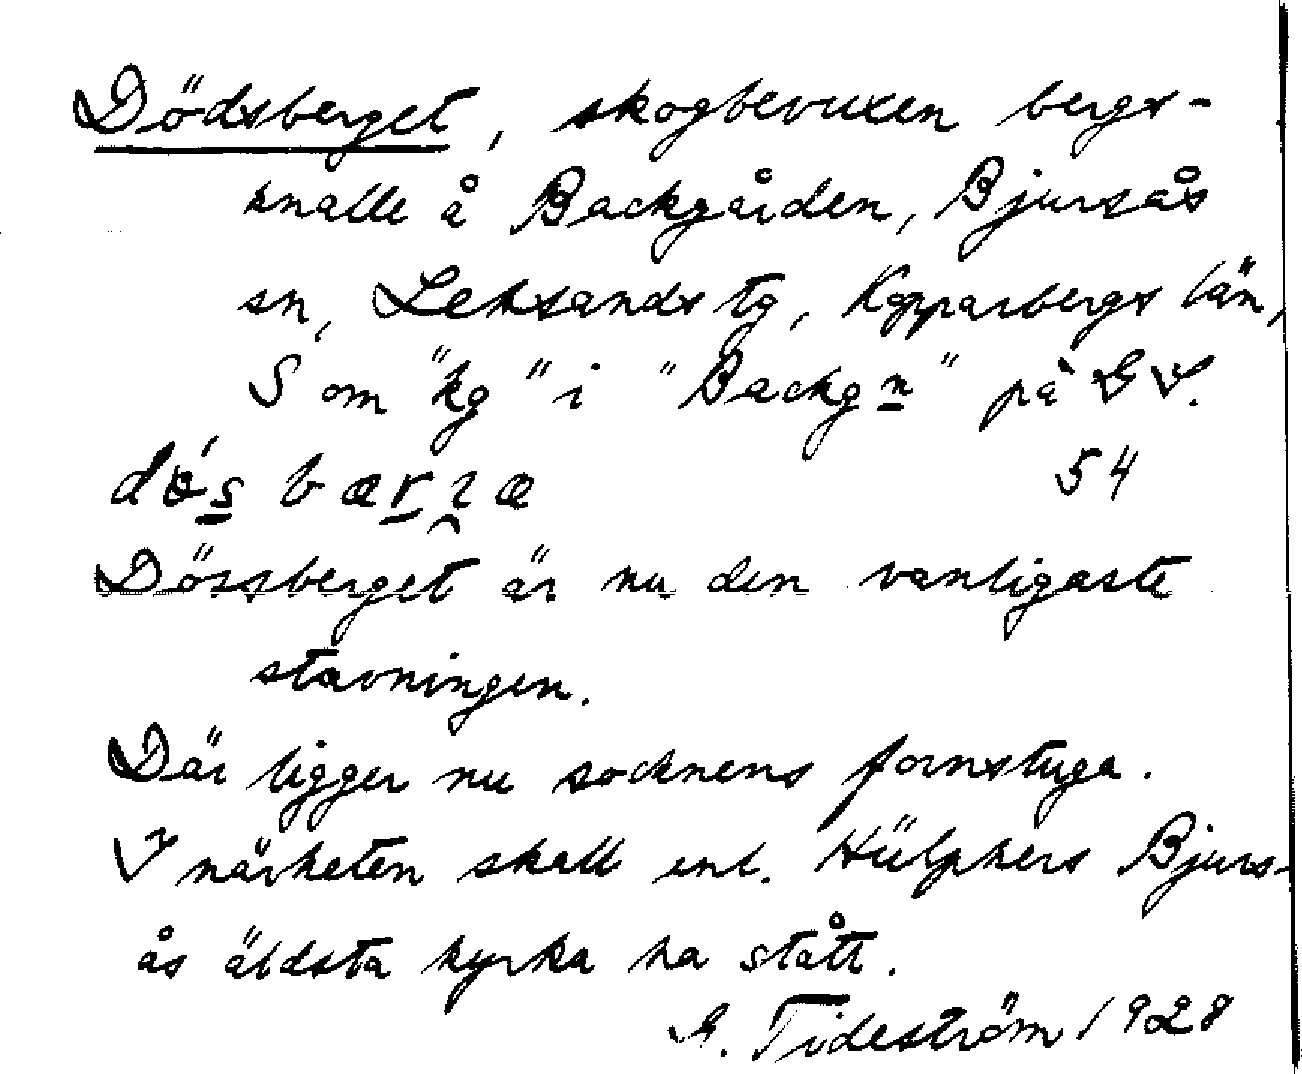 Dödsberget, skogbevuxen bergs-
knalle å Backgården, Bjursås
sn, Leksands tg, Kopparbergs län,
S om "kg" i "Backgn" på GS.
54
Dössberget är nu den vanligaste
stavningen.
Där ligger nu socknens fornstuga.
I närheten skall enl. Hülphers Bjurs-
ås äldsta kyrka ha stått.
G. Tideström 1928